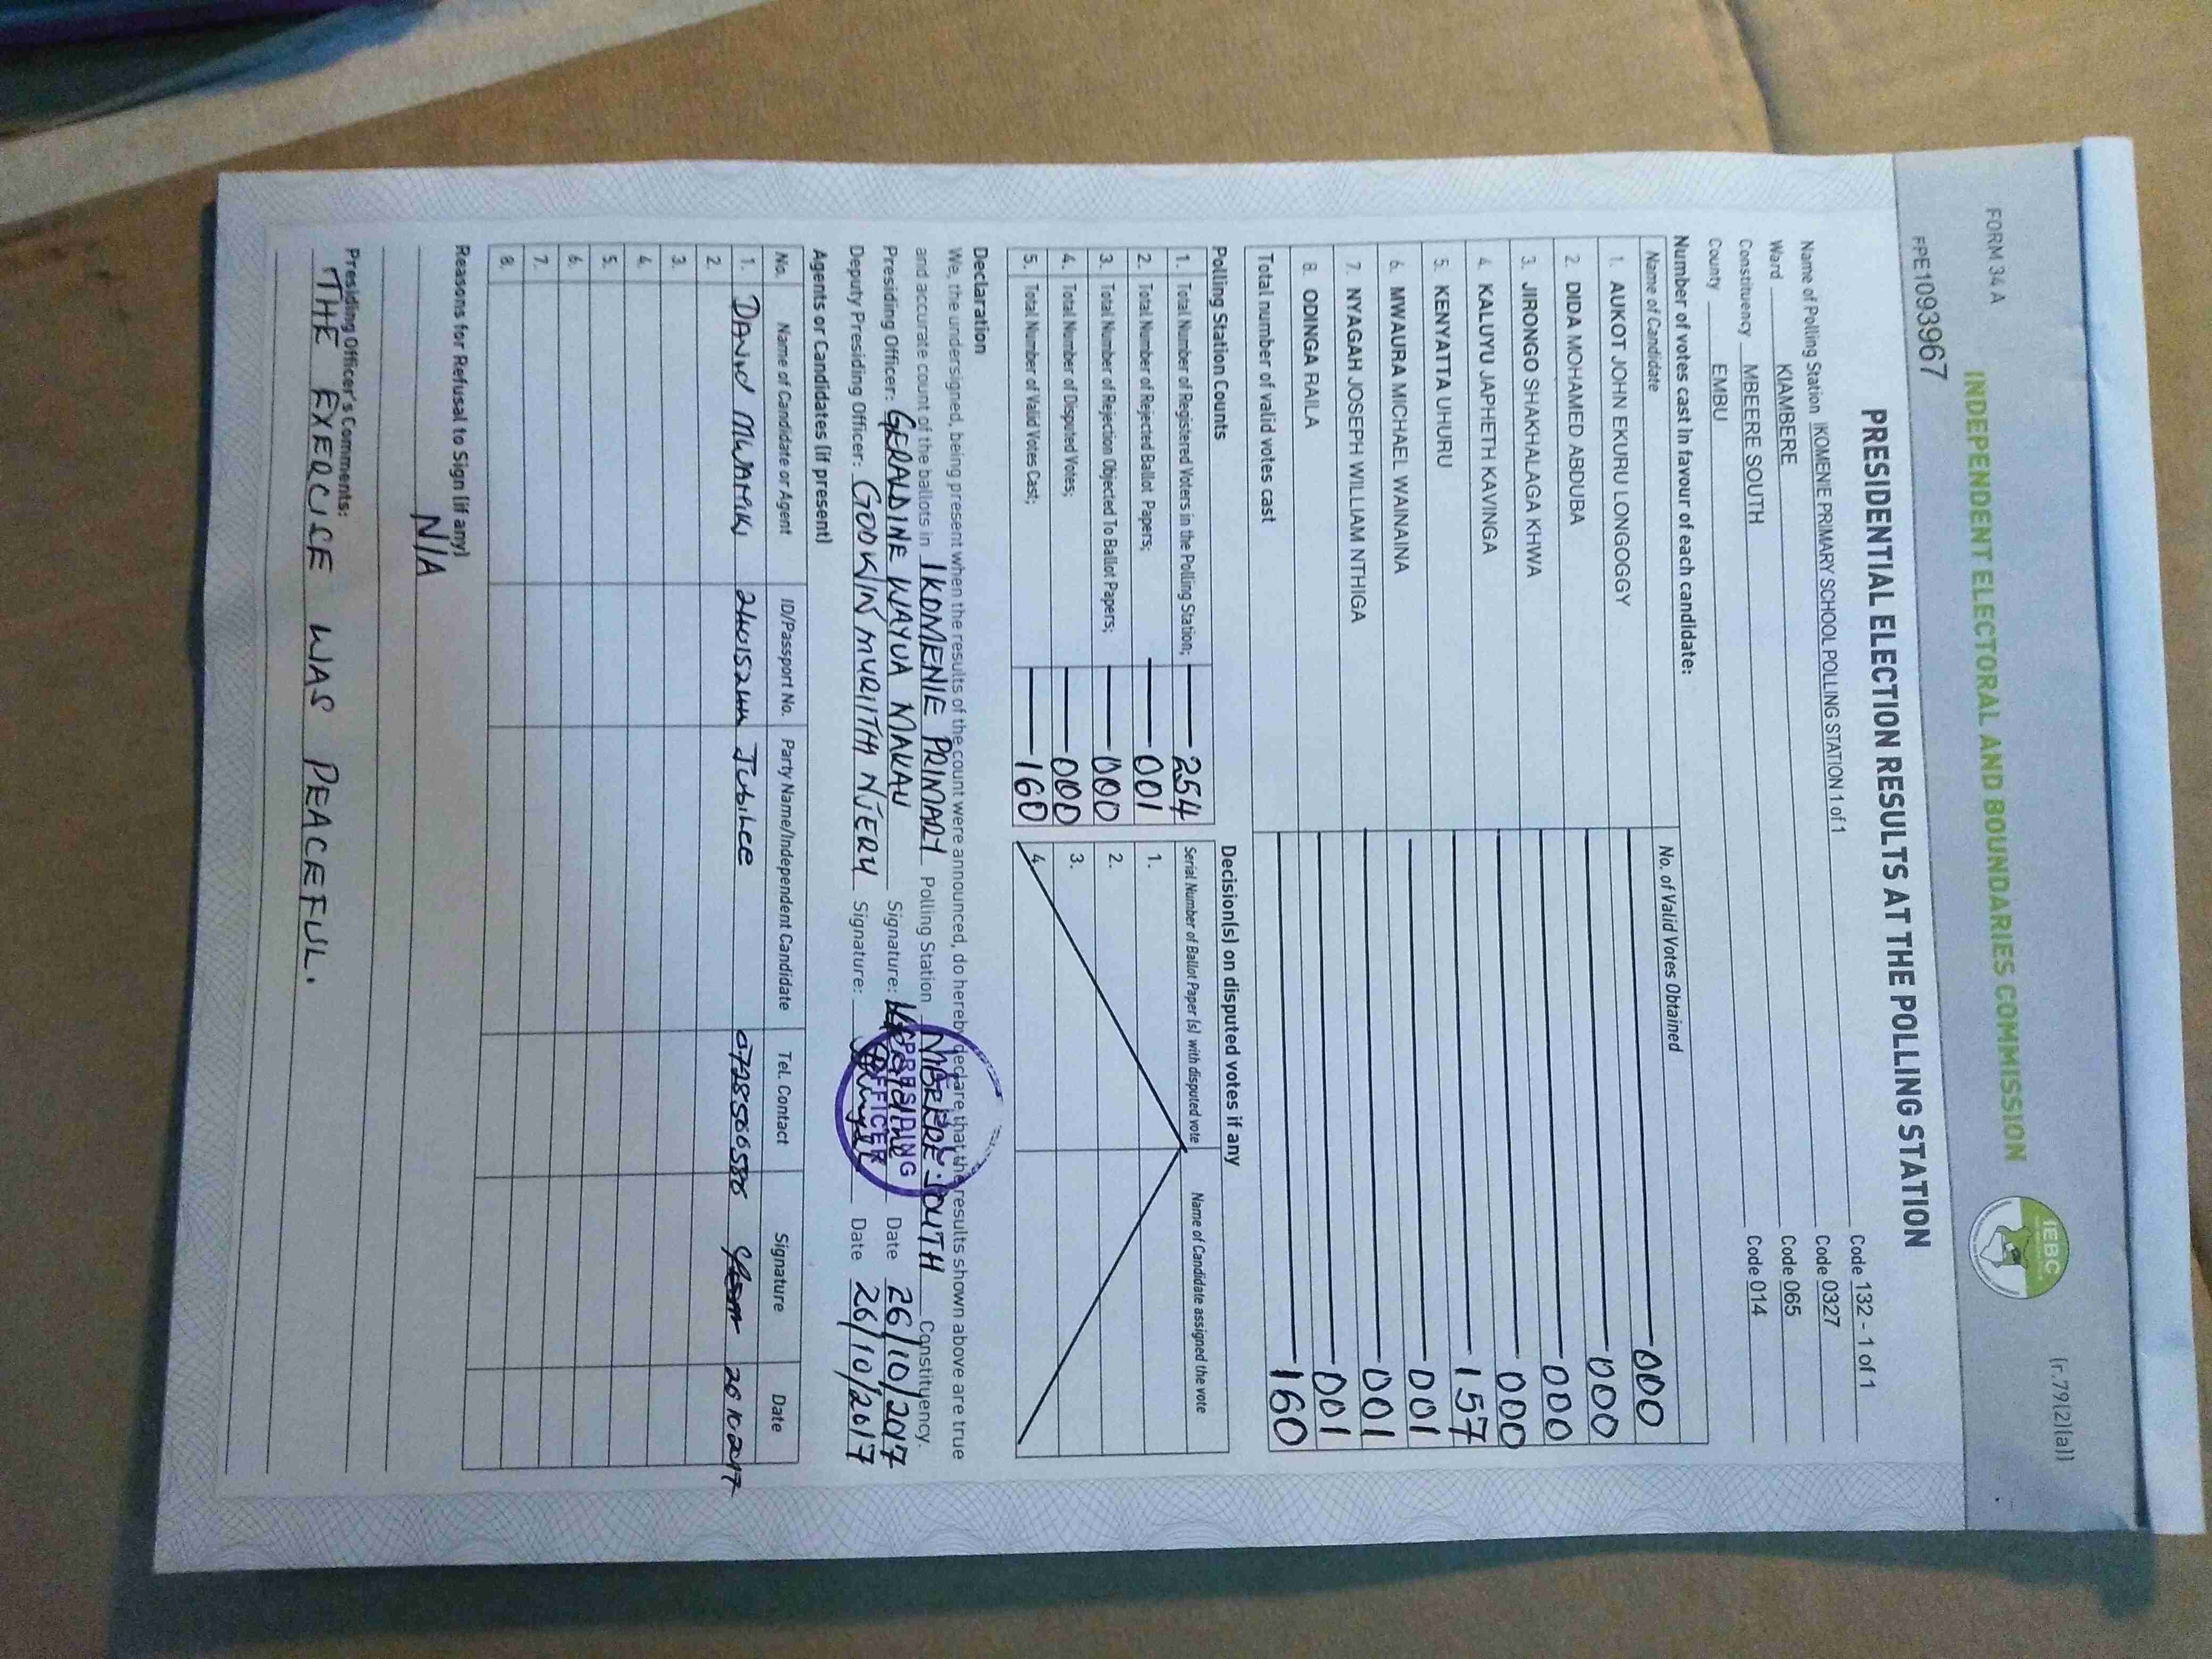 FORM 34 A
(r.79(2)(a))
INDEPENDENT ELECTORAL AND BOUNDARIES COMMISSION
IEBC
FPE1093967
PRESIDENTIAL ELECTION RESULTS AT THE POLLING STATION
Name of Polling Station IKOMENIE PRIMARY SCHOOL POLLING STATION 1 of 1 Code 132 - 1 of 1
Ward KIAMBERE Code 0327
Constituency MBEERE SOUTH Code 065
County EMBU Code 014
Number of votes cast in favour of each candidate:
Name of Candidate No. of Valid Votes Obtained
1. AUKOT JOHN EKURU LONGOGGY 000
2. DIDA MOHAMED ABDUBA 000
3. JIRONGO SHAKHALAGA KHWA 000
4. KALUYU JAPHETH KAVINGA 000
5. KENYATTA UHURU 157
6. MWAURA MICHAEL WAINAINA 001
7. NYAGAH JOSEPH WILLIAM NTHIGA 001
8. ODINGA RAILA 001
Total number of valid votes cast 160
Polling Station Counts
1. Total Number of Registered Voters in the Polling Station; 254
2. Total Number of Rejected Ballot Papers; 001
3. Total Number of Rejection Objected To Ballot Papers; 000
4. Total Number of Disputed Votes; 000
5. Total Number of Valid Votes Cast; 160
Decision(s) on disputed votes if any
Serial Number of Ballot Paper (s) with disputed vote Name of Candidate assigned the vote
1.
2.
3.
4.
Declaration
We, the undersigned, being present when the results of the count were announced, do hereby declare that the results shown above are true
and accurate count of the ballots in IKOMENIE PRIMARY Polling Station MBEERE SOUTH Constituency.
Presiding Officer: GERALDINE WAYUA MAKAU Signature: Date 26/10/2017
Deputy Presiding Officer: GODWIN MURIITHI NJERU Signature: Date 26/10/2017
PRESIDING
OFFICER
Agents or Candidates (if present)
No. Name of Candidate or Agent ID/Passport No. Party Name/Independent Candidate Tel. Contact Signature Date
1. DAVID MWANIKI Jubilee 26 10 2017
2.
3.
4.
5.
6.
7.
8.
Reasons for Refusal to Sign (if any)
N/A
Presiding Officer's Comments:
THE EXERCISE WAS PEACEFUL.